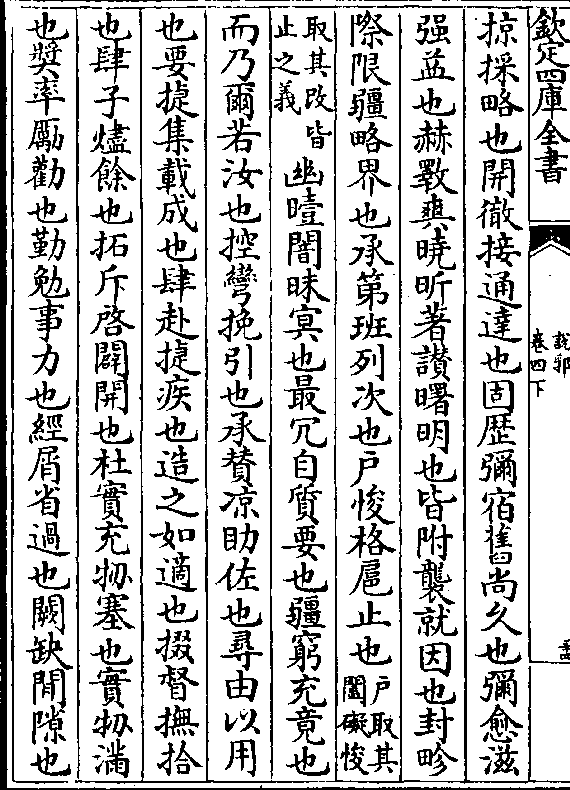 欽定四庫全書
説郛
卷四下
掠採略也開徹接通達也固歷彌宿舊尚久也彌愈滋
强益也赫斁爽曉昕著讃曙明也皆附襲就因也封畛
際限疆略界也承第班列次也户悛格扈止也户取其閡礙悛
取其改皆止之義幽曀闇昧冥也最冗自質要也疆窮充竟也
而乃爾若汝也控彎挽引也承賛凉助佐也尋由以用
也要捷集載成也肆赴捷疾也造之如適也掇督撫拾
也肆子燼餘也拓斥啓闢開也杜實充牣塞也實牣滿
也奬率厲勸也勤勉事力也經屑省過也闕缺閒隙也